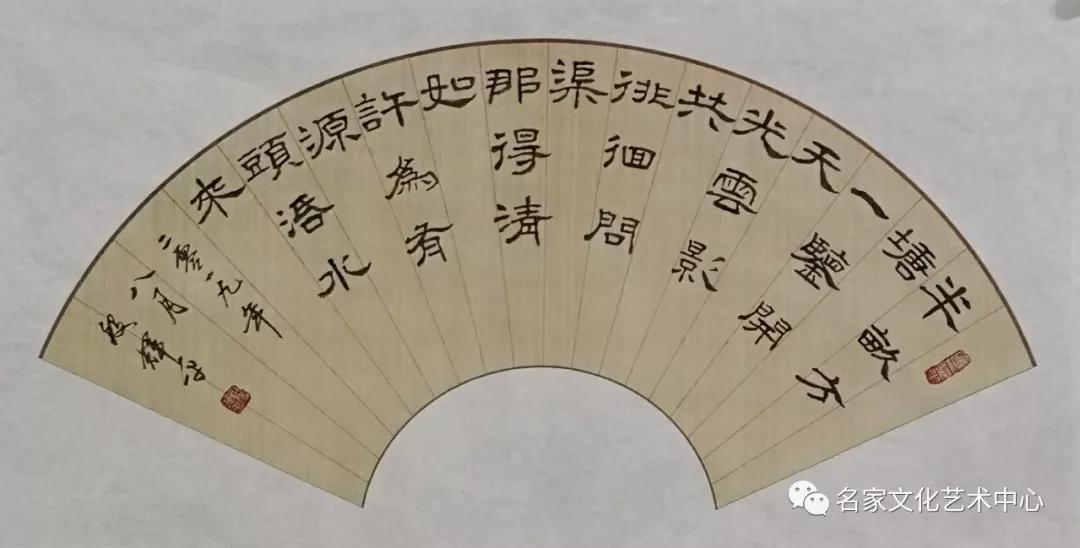 半畝方
塘
一鑒開
天
光雲影
共
徘徊問
渠
那得清
如
許為有
源
頭活水
來
二零一九年
八月
名家文化艺术中心